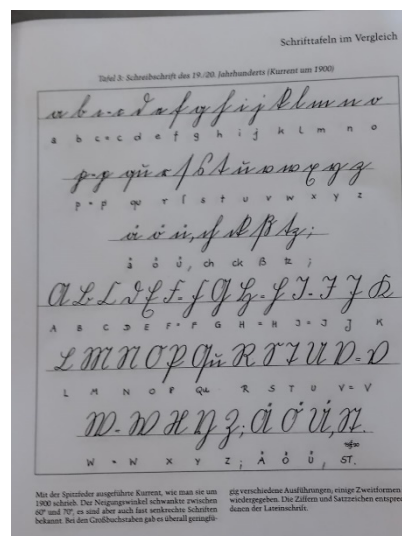 Schrifttafeln im Vergleich
Tafel 3: Schreibschrift des 19./20. Jahrhunderts (Kurrent um 1900)
a b c = c d e f g h i j k l m n o
a b c = c d e f g h i j k l m n o
p = p qu r ſ s t u v w x y z
p = p qu r ſ s t u v w x y z
ä ö ü, ch ck ß tz ;
å ů ů, ch ck ß tz ;
A B C D E F = F G H = H I = I J K
A B C D E F = F G H = H I = I J K
L M N O P Qu R S T U V = V
L M N O P Qu R S T U V = V
W = W X Y Z ; Ä Ö Ü, St.
W = W X Y Z ; Å Ů Ů, ST.
Mit der Spitzfeder ausgeführte Kurrent, wie man sie um
1900 schrieb. Der Neigungswinkel schwankte zwischen
60° und 70°, es sind aber auch fast senkrechte Schriften
bekannt. Bei den Großbuchstaben gab es überall geringfü-
gig verschiedene Ausführungen; einige Zweitformen
wiedergegeben. Die Ziffern und Satzzeichen entsprec
denen der Lateinschrift.